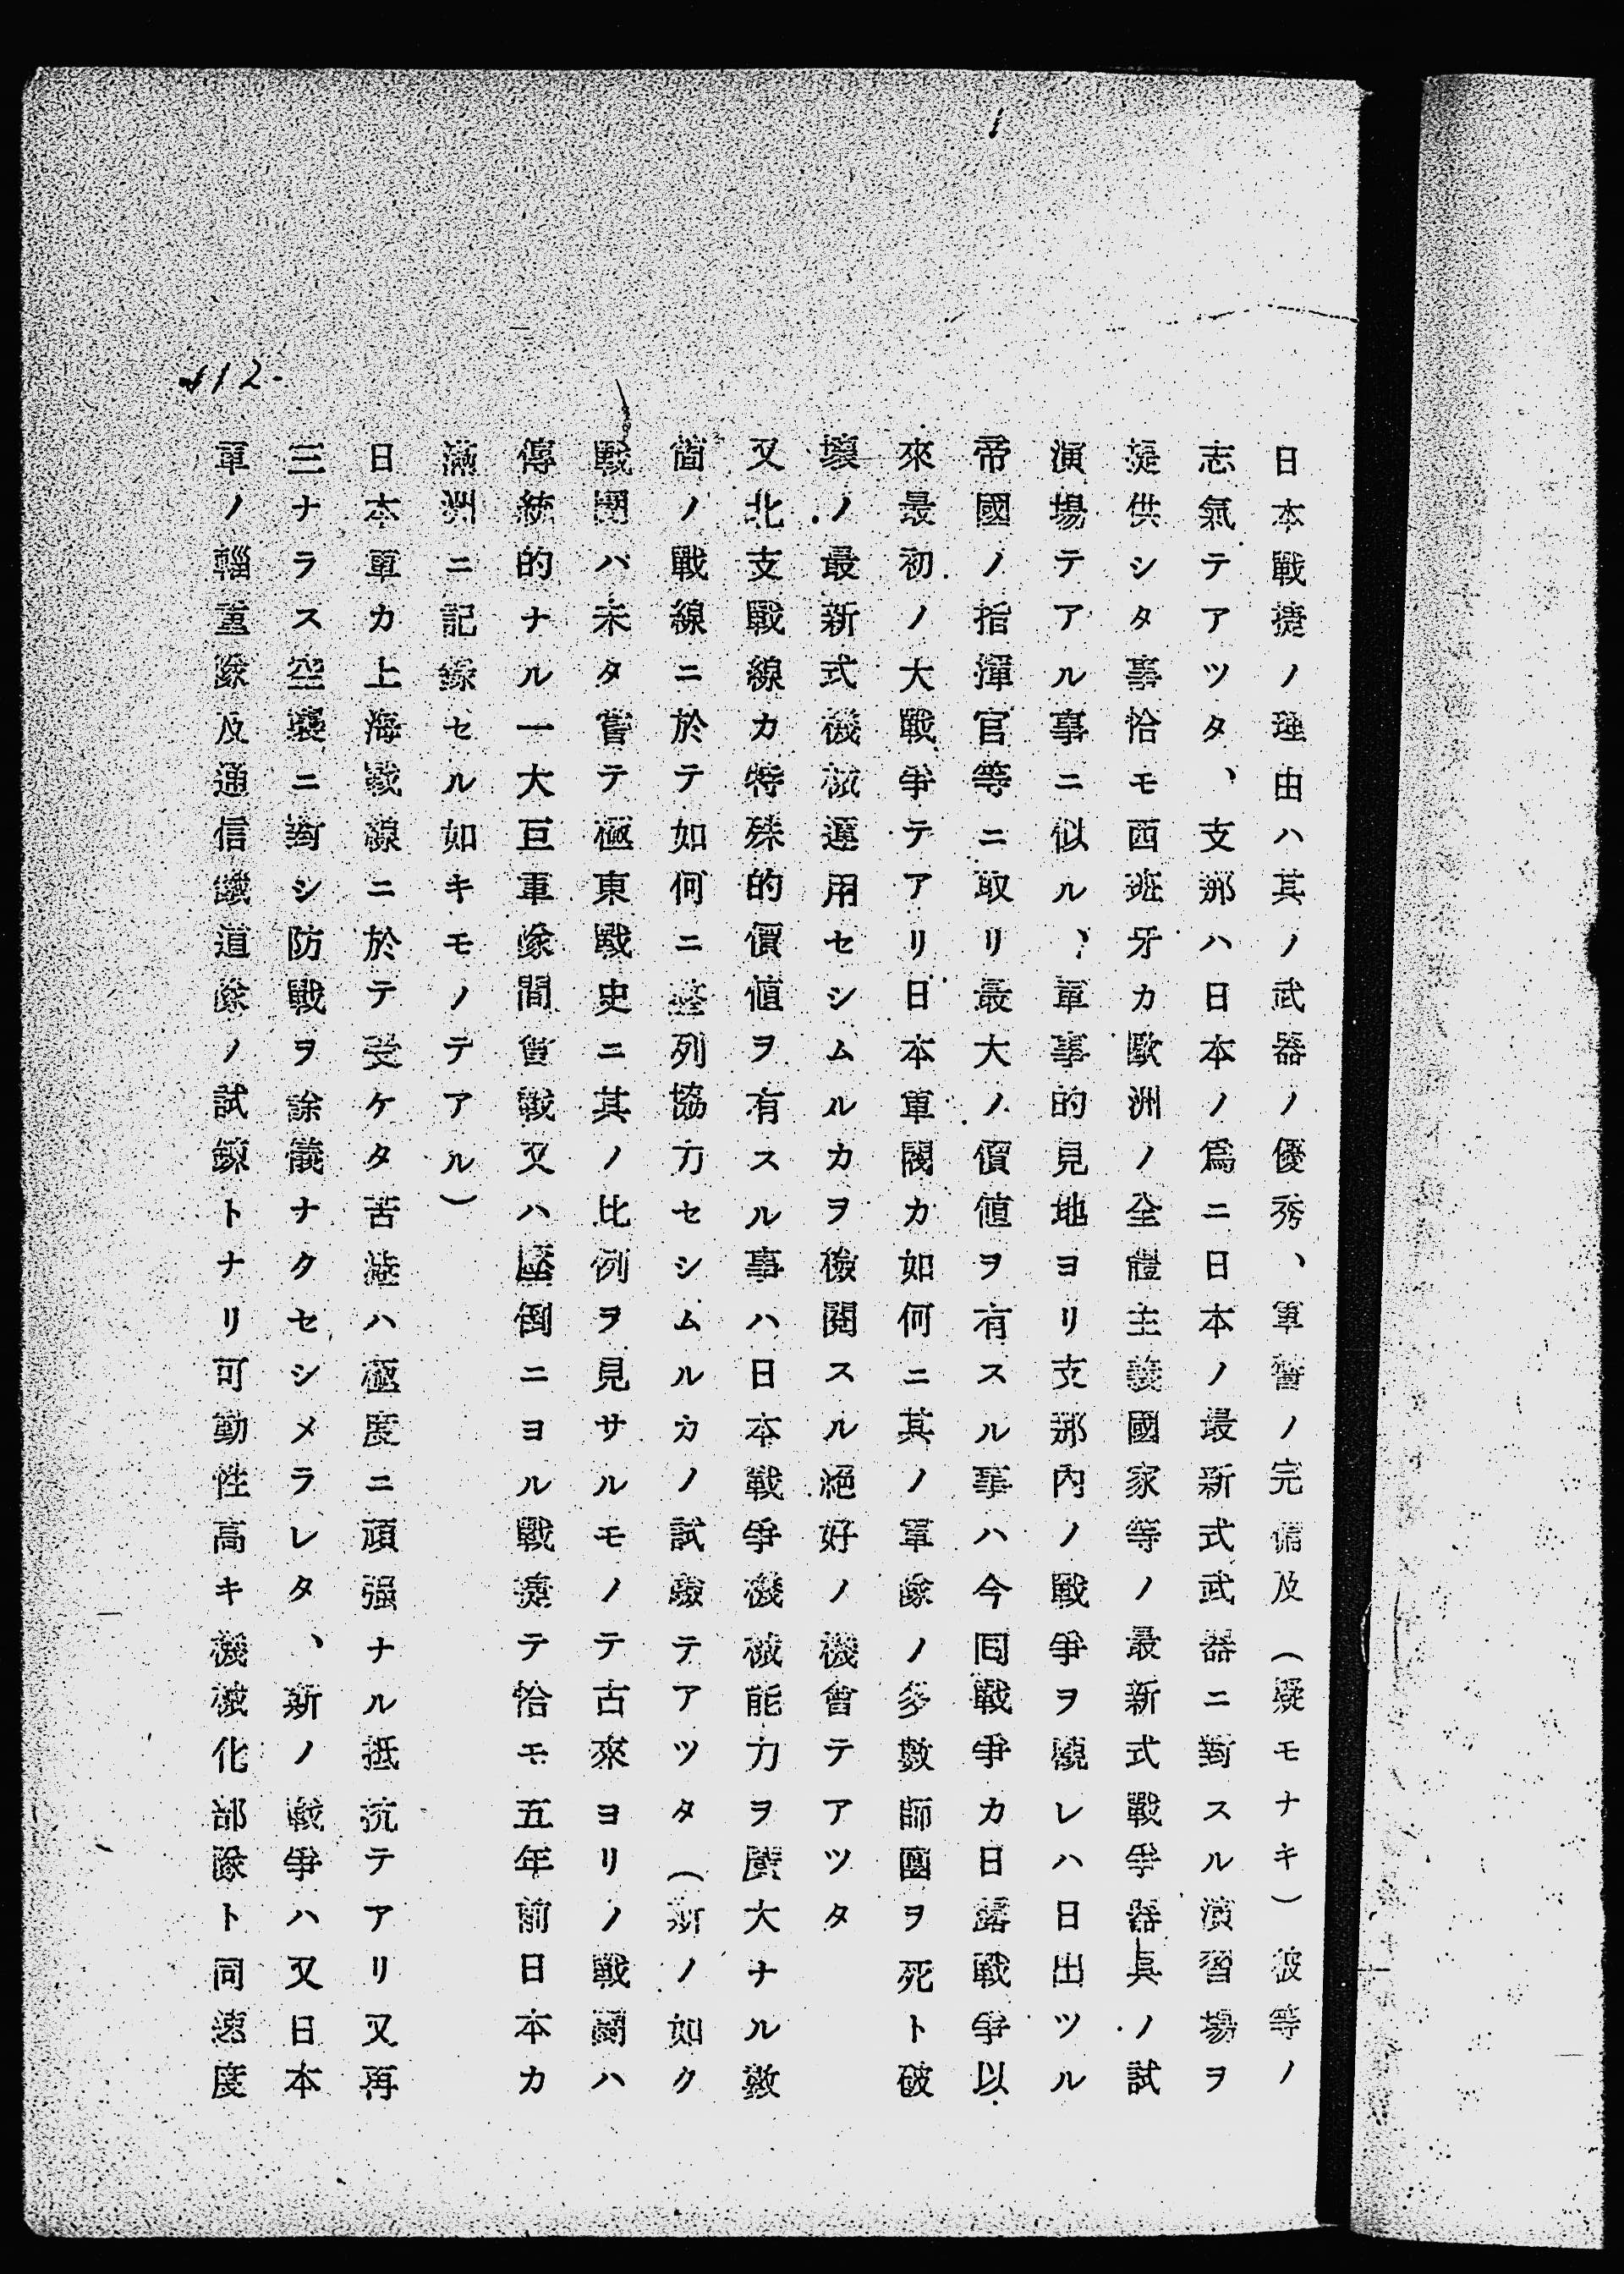 1
112.
日本戰捷ノ理由ハ其ノ武器ノ優秀、軍備ノ完備及(疑モナキ)彼等ノ
志氣テアツタ、支那ハ日本ノ爲ニ日本ノ最新式武器ニ對スル演習場ヲ
提供シタ事恰モ西班牙カ歐洲ノ全體主義國家等ノ最新式戰爭器具ノ試
演場テアル事ニ似ル、軍事的見地ヨリ支那內ノ戰爭ヲ觀レハ日出ツル
帝國ノ指揮官等ニ取リ最大ノ價値ヲ有スル事ハ今囘戰爭カ日露戰爭以
來最初ノ大戰爭テアリ日本軍閥カ如何ニ其ノ軍隊ノ多數師團ヲ死ト破
壞ノ最新式機械運用セシムルカヲ檢閱スル絕好ノ機會テアツタ
又北支戰線カ特殊的價値ヲ有スル事ハ日本戰爭機械能力ヲ廣大ナル數
箇ノ戰線ニ於テ如何ニ並列協力セシムルカノ試驗テアツタ(斯ノ如ク
戰團ハ未タ嘗テ極東戰史ニ其ノ比例ヲ見サルモノテ古來ヨリノ戰鬪ハ
傳統的ナル一大巨軍隊間會戰又ハ壓倒ニヨル戰捷テ恰モ五年前日本カ
滿洲ニ記錄セル如キモノテアル)
日本軍カ上海戰線ニ於テ受ケタ苦澁ハ極度ニ頑强ナル抵抗テアリ又再
三ナラス空襲ニ對シ防戰ヲ餘儀ナクセシメラレタ、斯ノ戰爭ハ又日本
軍ノ輜重隊及通信鐵道隊ノ試鍊トナリ可動性高キ機械化部隊ト同速度